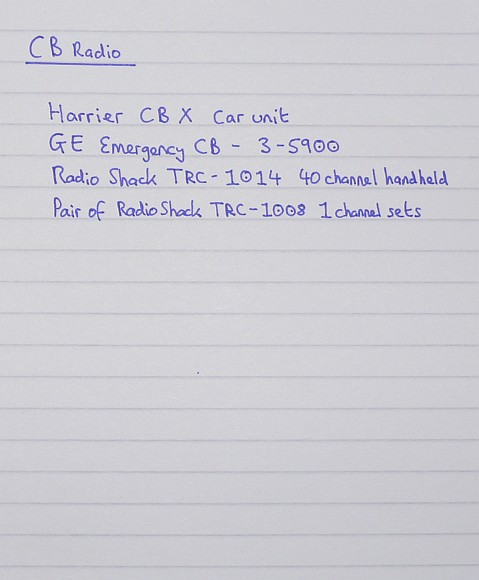 CB Radio
Harrier CB X Car unit
GE Emergency CB - 3-5900
Radio Shack TRC-1014 40 channel handheld
Pair of Radio Shack TRC-1008 1 channel sets